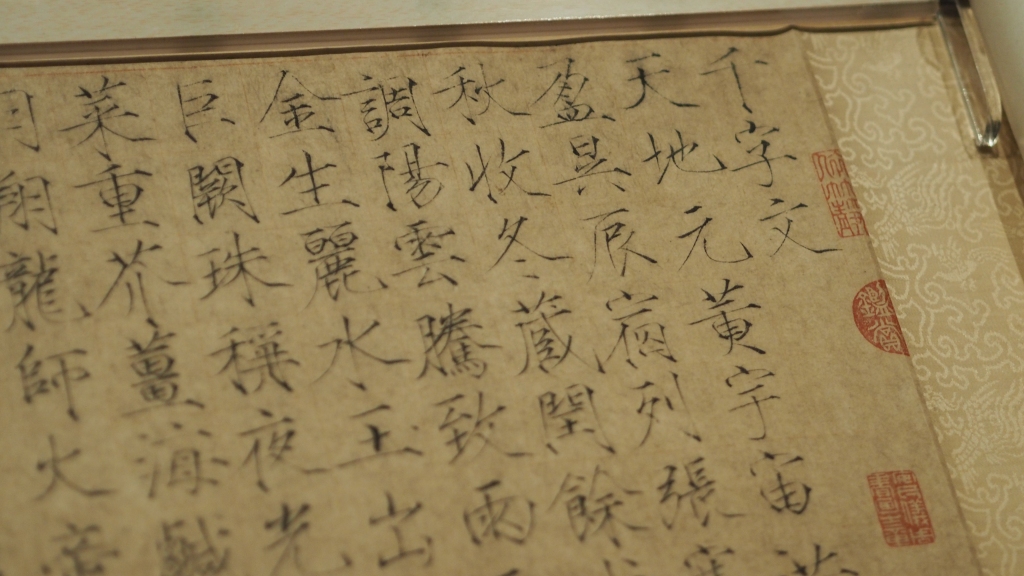 千字文
天地元黃宇宙
盈昃辰宿列張寒
秋收冬蔵閏餘
調陽雲騰致雨
金生麗水玉出
巨闕珠稱夜光
菜重芥薑海鹹
翔龍師火帝